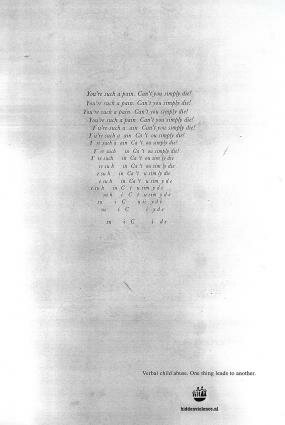 You're such a pain. Can't you simply die!
You're such a pain. Can't you simply die!
You're such a pain. Can't you simply die!
You're such a pain. Can't you simply die!
Y u're such a ain. Can't you simply die!
Y u're such a ain. Ca 't you simply die!
Y re such a ain Ca 't ou simply die!
Y re such in Ca 't ou simply die!
Y re such in Ca 't ou sim ly die
re su h in Ca 't u sim ly die
e su h in Ca 't u sim ly die
e such in Ca 't u sim y d e
e su h in C t u sim y d e
su h i C t u sim y d e
su i C u i y d e
su i C i y d e
su i C i d e
Verbal child abuse. One thing leads to another.
hiddenviolence.nl